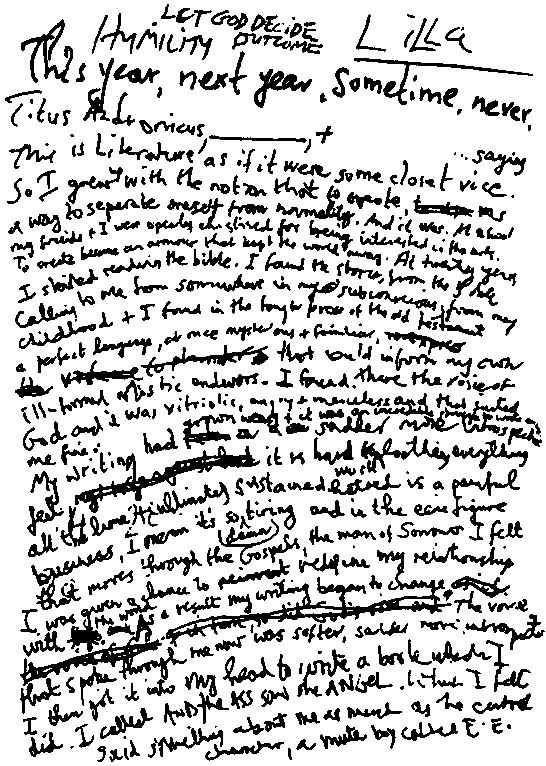 LET GOD DECIDE
HUMILITY OUTCOME
LiLLa
This year, next year, sometime, never.
Titus Andronicus, +
...saying
This is Literature, as if it were some closet vice.
So I grew with the notion that to create, was
a way to separate oneself from normality. And it was. At school
my friends + I were openly chastised for being interested in the arts.
To create became an armour that kept the world away. At twenty years
I started reading the bible. I found the stories, from the Bible
calling to me from somewhere in my subconscious, from my
childhood + I found in the tougher prose of the old testament
a perfect language, at once mysterious + familiar,
that could inform my own
ill-formed artistic endeavors. I found there the voice of
God and it was vitriolic, angry + merciless and that suited
me fine.
My writing had
it is hard loathing everything
all the time, ultimately sustained is a painful
business, I mean its so tiring and in the figure
that moves through the Gospels, the man of Sorrows I felt
I was given a chance to redefine my relationship
with the world As a result my writing began to change. The voice
that spoke through me now was softer, sadder more introspective
I then got it into my head to write a book which I
did. I called AND THE ASS SAW THE ANGEL. I felt
said something about me as much as the central
character, a mute boy called E.E.